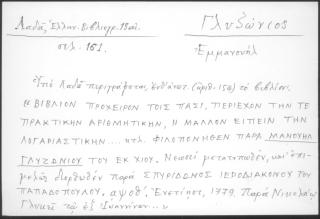 Λαδᾶ, Ἑλλην. Βιβλιογρ. 18 αἰ.
σελ. 151.
Γλυζώνιος
Ἐμμανουήλ
Ὑπὸ Λαδᾶ περιγράφεται ἐνθ' ἀνωτ. (ἀριθ. 150) τὸ βιβλίον.
« ΒΙΒΛΙΟΝ ΠΡΟΧΕΙΡΟΝ ΤΟΙΣ ΠΑΣΙ, ΠΕΡΙΕΧΟΝ ΤΗΝ ΤΕ
ΠΡΑΚΤΙΚΗΝ ΑΡΙΘΜΗΤΙΚΗΝ, Η ΜΑΛΛΟΝ ΕΙΠΕΙΝ ΤΗΝ
ΛΟΓΑΡΙΑΣΤΙΚΗΝ.... κτλ. ΦΙΛΟΠΟΝΗΘΕΝ ΠΑΡΑ ΜΑΝΟΥΗΛ
ΓΛΥΖΩΝΙΟΥ ΤΟΥ ΕΚ ΧΙΟΥ. Νεωστὶ μετατυπωθέν, καὶ ἐπι-
μελῶς διορθωθὲν παρὰ ΣΠΥΡΙΔΩΝΟΣ ΙΕΡΟΔΙΑΚΟΝΟΥ ΤΟΥ
ΠΑΠΑΔΟΠΟΥΛΟΥ, αψοθ'. Ἐνετίησι, 1779. Παρὰ Νικολάῳ
Γλυκεῖ τῷ ἐξ Ἰωαννίνων...»